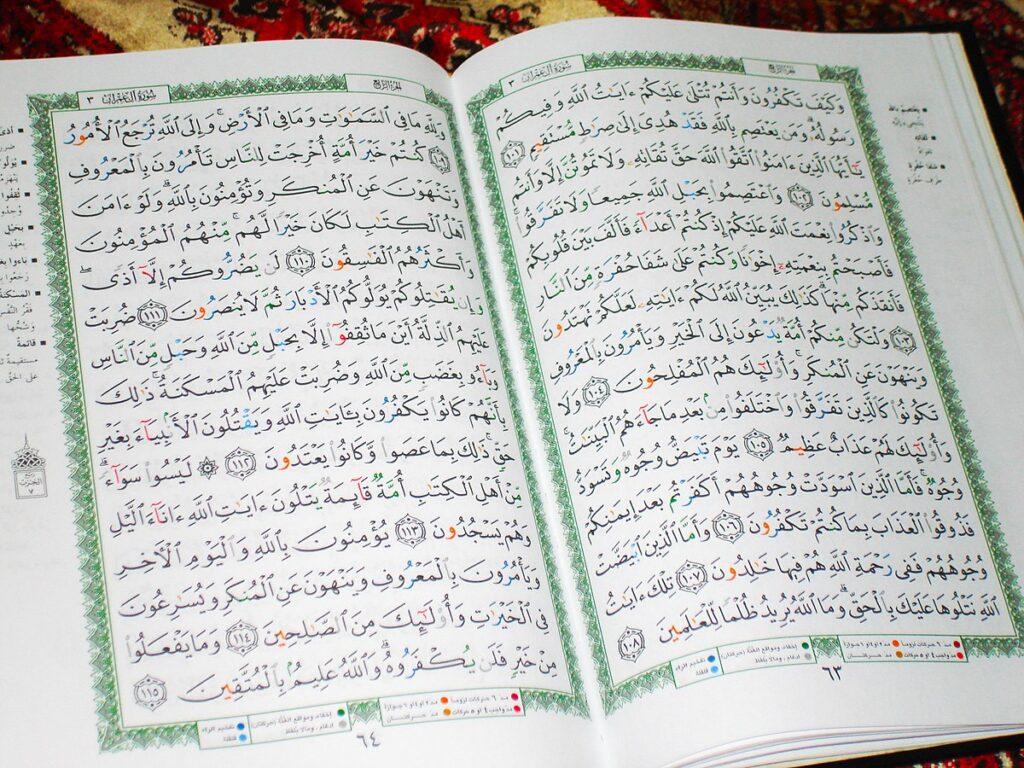 سُورَةُ آلِ عِمْرَانَ ٣
الجزء الرابع
وَكَيْفَ تَكْفُرُونَ وَأَنتُمْ تُتْلَىٰ عَلَيْكُمْ ءَايَـٰتُ ٱللَّهِ وَفِيكُمْ
رَسُولُهُۥ ۗ وَمَن يَعْتَصِم بِٱللَّهِ فَقَدْ هُدِىَ إِلَىٰ صِرَٰطٍ مُّسْتَقِيمٍ ١٠١
يَـٰٓأَيُّهَا ٱلَّذِينَ ءَامَنُوا۟ ٱتَّقُوا۟ ٱللَّهَ حَقَّ تُقَاتِهِۦ وَلَا تَمُوتُنَّ إِلَّا وَأَنتُم
مُّسْلِمُونَ ١٠٢ وَٱعْتَصِمُوا۟ بِحَبْلِ ٱللَّهِ جَمِيعًا وَلَا تَفَرَّقُوا۟ ۚ
وَٱذْكُرُوا۟ نِعْمَتَ ٱللَّهِ عَلَيْكُمْ إِذْ كُنتُمْ أَعْدَآءً فَأَلَّفَ بَيْنَ قُلُوبِكُمْ
فَأَصْبَحْتُم بِنِعْمَتِهِۦٓ إِخْوَٰنًا وَكُنتُمْ عَلَىٰ شَفَا حُفْرَةٍ مِّنَ ٱلنَّارِ
فَأَنقَذَكُم مِّنْهَا ۗ كَذَٰلِكَ يُبَيِّنُ ٱللَّهُ لَكُمْ ءَايَـٰتِهِۦ لَعَلَّكُمْ تَهْتَدُونَ
١٠٣ وَلْتَكُن مِّنكُمْ أُمَّةٌ يَدْعُونَ إِلَى ٱلْخَيْرِ وَيَأْمُرُونَ بِٱلْمَعْرُوفِ
وَيَنْهَوْنَ عَنِ ٱلْمُنكَرِ ۚ وَأُو۟لَـٰٓئِكَ هُمُ ٱلْمُفْلِحُونَ ١٠٤ وَلَا
تَكُونُوا۟ كَٱلَّذِينَ تَفَرَّقُوا۟ وَٱخْتَلَفُوا۟ مِنۢ بَعْدِ مَا جَآءَهُمُ ٱلْبَيِّنَـٰتُ ۚ
وَأُو۟لَـٰٓئِكَ لَهُمْ عَذَابٌ عَظِيمٌ ١٠٥ يَوْمَ تَبْيَضُّ وُجُوهٌ وَتَسْوَدُّ
وُجُوهٌ ۚ فَأَمَّا ٱلَّذِينَ ٱسْوَدَّتْ وُجُوهُهُمْ أَكَفَرْتُم بَعْدَ إِيمَـٰنِكُمْ
فَذُوقُوا۟ ٱلْعَذَابَ بِمَا كُنتُمْ تَكْفُرُونَ ١٠٦ وَأَمَّا ٱلَّذِينَ ٱبْيَضَّتْ
وُجُوهُهُمْ فَفِى رَحْمَةِ ٱللَّهِ هُمْ فِيهَا خَـٰلِدُونَ ١٠٧ تِلْكَ ءَايَـٰتُ
ٱللَّهِ نَتْلُوهَا عَلَيْكَ بِٱلْحَقِّ ۗ وَمَا ٱللَّهُ يُرِيدُ ظُلْمًا لِّلْعَـٰلَمِينَ ١٠٨
مد ٦ حركات لزوماً مد ٢ او ٤ او ٦ جوازاً إخفاء، ومواقع الغُنَّة (حركتان) تفخيم الراء
مد واجب ٤ او ٥ حركات مد حركتان ادغام، ومالا يلفظ قلقلة
٦٣
سُورَةُ آلِ عِمْرَانَ ٣
الجزء الرابع
وَلِلَّهِ مَا فِى ٱلسَّمَـٰوَٰتِ وَمَا فِى ٱلْأَرْضِ ۚ وَإِلَى ٱللَّهِ تُرْجَعُ ٱلْأُمُورُ
١٠٩ كُنتُمْ خَيْرَ أُمَّةٍ أُخْرِجَتْ لِلنَّاسِ تَأْمُرُونَ بِٱلْمَعْرُوفِ
وَتَنْهَوْنَ عَنِ ٱلْمُنكَرِ وَتُؤْمِنُونَ بِٱللَّهِ ۗ وَلَوْ ءَامَنَ
أَهْلُ ٱلْكِتَـٰبِ لَكَانَ خَيْرًا لَّهُم ۚ مِّنْهُمُ ٱلْمُؤْمِنُونَ
وَأَكْثَرُهُمُ ٱلْفَـٰسِقُونَ ١١٠ لَن يَضُرُّوكُمْ إِلَّآ أَذًى ۖ
وَإِن يُقَـٰتِلُوكُمْ يُوَلُّوكُمُ ٱلْأَدْبَارَ ثُمَّ لَا يُنصَرُونَ ١١١ ضُرِبَتْ
عَلَيْهِمُ ٱلذِّلَّةُ أَيْنَ مَا ثُقِفُوٓا۟ إِلَّا بِحَبْلٍ مِّنَ ٱللَّهِ وَحَبْلٍ مِّنَ ٱلنَّاسِ
وَبَآءُو بِغَضَبٍ مِّنَ ٱللَّهِ وَضُرِبَتْ عَلَيْهِمُ ٱلْمَسْكَنَةُ ۚ ذَٰلِكَ
بِأَنَّهُمْ كَانُوا۟ يَكْفُرُونَ بِـَٔايَـٰتِ ٱللَّهِ وَيَقْتُلُونَ ٱلْأَنۢبِيَآءَ بِغَيْرِ
حَقٍّ ۚ ذَٰلِكَ بِمَا عَصَوا۟ وَّكَانُوا۟ يَعْتَدُونَ ١١٢ ۞ لَيْسُوا۟ سَوَآءً ۗ
مِّنْ أَهْلِ ٱلْكِتَـٰبِ أُمَّةٌ قَآئِمَةٌ يَتْلُونَ ءَايَـٰتِ ٱللَّهِ ءَانَآءَ ٱلَّيْلِ
وَهُمْ يَسْجُدُونَ ١١٣ يُؤْمِنُونَ بِٱللَّهِ وَٱلْيَوْمِ ٱلْأَخِرِ
وَيَأْمُرُونَ بِٱلْمَعْرُوفِ وَيَنْهَوْنَ عَنِ ٱلْمُنكَرِ وَيُسَـٰرِعُونَ
فِى ٱلْخَيْرَٰتِ وَأُو۟لَـٰٓئِكَ مِنَ ٱلصَّـٰلِحِينَ ١١٤ وَمَا يَفْعَلُوا۟
مِنْ خَيْرٍ فَلَن يُكْفَرُوهُ ۗ وَٱللَّهُ عَلِيمٌۢ بِٱلْمُتَّقِينَ ١١٥
مد ٦ حركات لزوماً مد ٢ او ٤ او ٦ جوازاً إخفاء، ومواقع الغُنَّة (حركتان) تفخيم الراء
مد واجب ٤ او ٥ حركات مد حركتان ادغام، ومالا يلفظ قلقلة
٦٤